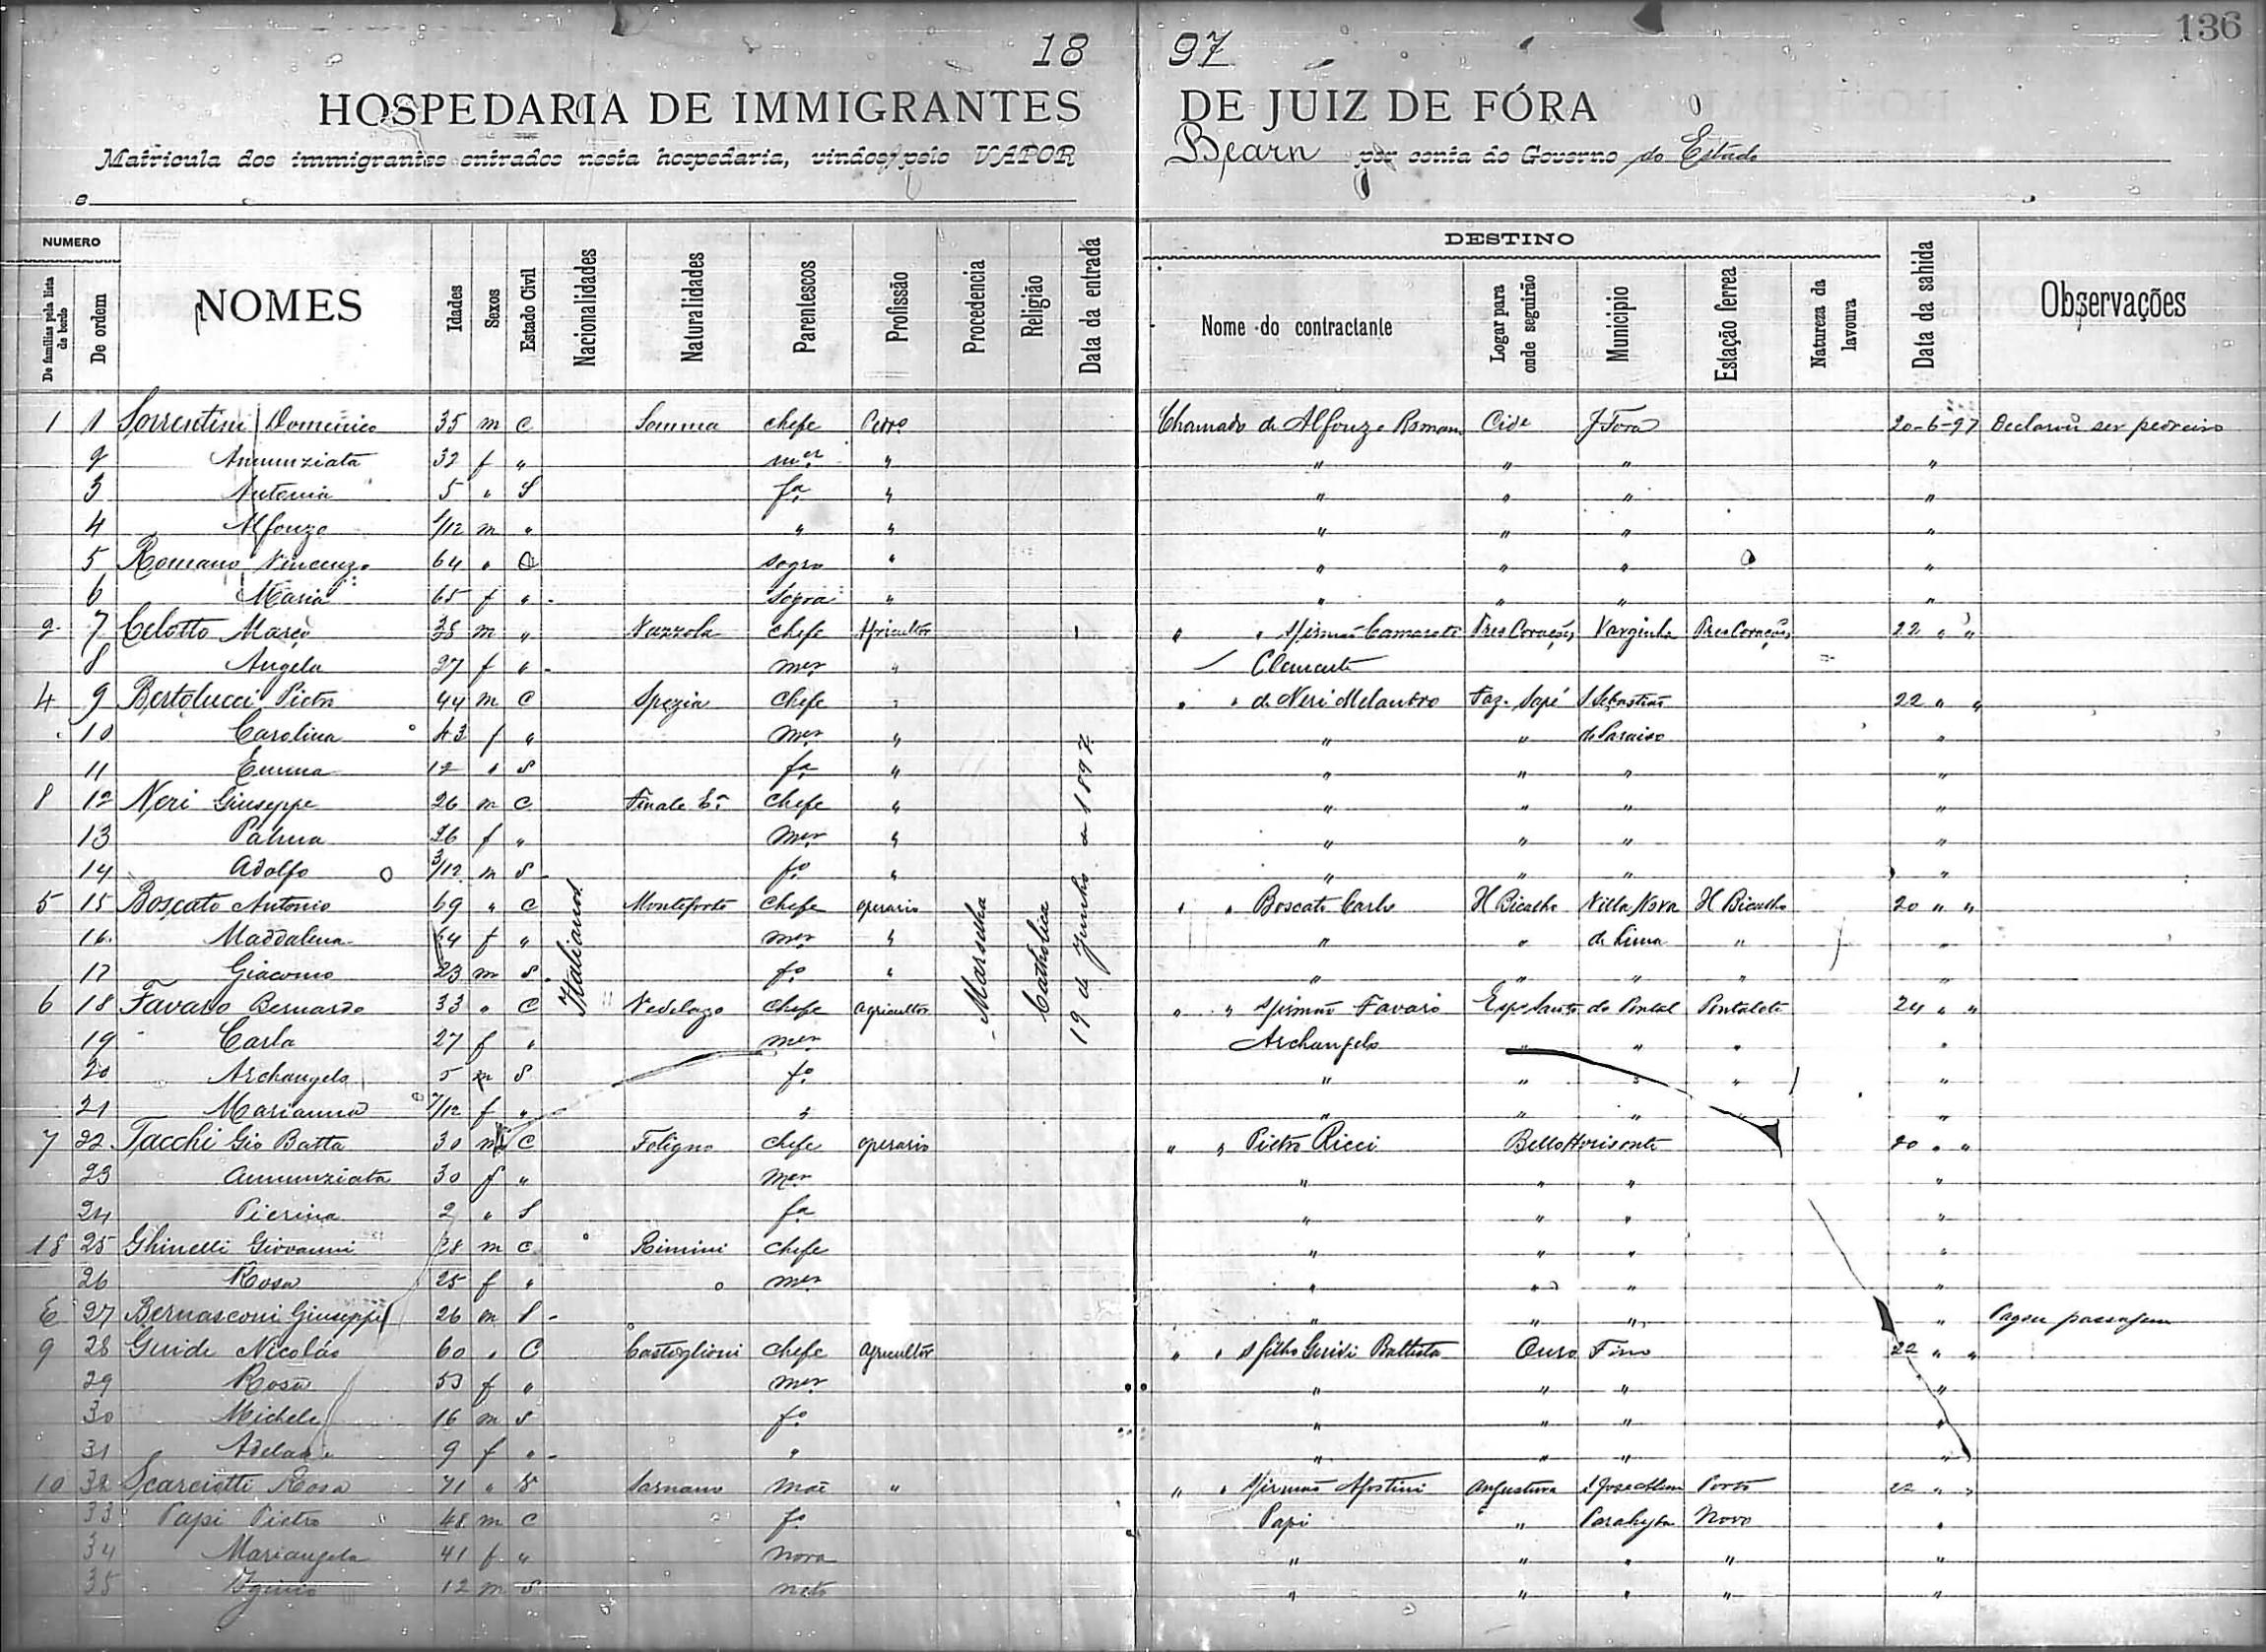 136
18 97
HOSPEDARIA DE IMMIGRANTES DE JUIZ DE FÓRA
Matricula dos immigrantes entrados nesta hospedaria, vindos pelo VAPOR Bearn por conta do Governo do Estado
e
NUMERO
De familias pela lista de bordo
De ordem
NOMES
Idades
Sexos
Estado Civil
Nacionalidades
Naturalidades
Parentescos
Profissão
Procedencia
Religião
Data da entrada
DESTINO
Nome do contractante
Logar para onde seguirão
Municipio
Estação ferrea
Natureza da lavoura
Data da sahida
Observações
Italianos
Marselha
Catholica
19 de Junho de 1897
1 1 Sorrentini Domenico 35 m C Somma chefe Pedro. Chamado de Alfonzo Roman Cide J Fora 20-6-97 Declarou ser pedreiro
2 Annunziata 32 f " mer " " " " "
3 Antonia 5 " S fa " " " " "
4 Alfonzo /12 m " " " " " " "
5 Romano Vincenzo 64 " C sogro " " " " "
6 Maria 65 f " sogra " " " " "
2 7 Celotto Marco 38 m " Nazzola chefe Agricultor " " s/ irmão Camarote Tres Corações Varginha Tres Corações 22 " "
8 Angela 27 f " mer " Clemente
4 9 Bertolucci Pietro 44 m C Spezia chefe " " " de Neri Melandro Faz. Sapé S Sebastião 22 " "
10 Carolina 43 f " mer " " " do Paraiso "
11 Emma 12 " S fa " " " " "
8 12 Neri Giuseppe 26 m C Finale Ea chefe " " " " "
13 Palma 26 f " mer " " " " "
14 Adolfo 3/12 m S fo " " " " "
5 15 Boscato Antonio 69 " C Monteforte chefe operario " " Boscato Carlo H Bicalho Villa Nova H Bicalho 20 " "
16 Maddalena 64 f " mer " " " de Lima " "
17 Giacomo 23 m S fo " " " " " "
6 18 Favaro Bernardo 33 " C Vedelago chefe agricultor " " s/ irmão Favaro Espo Santo do Pontal Pontalete 24 " "
19 Carla 27 f " mer Archangelo " " " "
20 Archangelo 5 m S fo " " " " "
21 Marianna 7/12 f " " " " " "
7 22 Tacchi Gio Batta 30 m C Foligno chefe operario " " Pietro Ricci Bello Horisonte 20 " "
23 Annunziata 30 f " mer " " " "
24 Pierina 2 " S fa " " " "
18 25 Ghinelli Giovanni 28 m C Rimini chefe " " " "
26 Rosa 25 f " mer " " " "
E 27 Bernasconi Giuseppe 26 m S " " " " Pagou passagem
9 28 Guidi Nicolás 60 " C Castiglioni chefe agricultor " " s/ filho Guidi Battista Ouro Fino 22 " "
29 Rosa 53 f " mer " " " "
30 Michele 16 m S fo " " " "
31 Adelai 9 f " " " " " "
10 32 Scarciotti Rosa 71 " V Sarnano mãe " " " s/ irmão Agostini Angustura S José Alem Porto 22 " "
33 Papi Pietro 48 m C fo Papi " Parahyba Novo "
34 Mariangela 41 f " nora " " " " "
35 Iginio 12 m S neto " " " " "